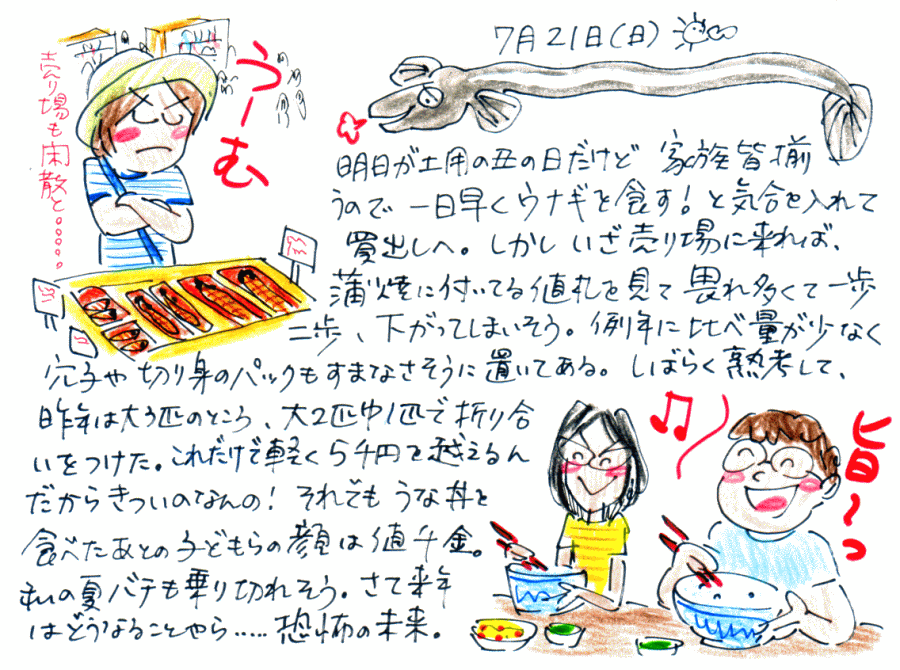 7月21日(日)
明日が土用の丑の日だけど 家族皆揃
うので一日早くウナギを食す!と気合を入れて
買出しへ。しかしいざ売り場に来れば、
蒲焼に付いてる値札を見て畏れ多くて一歩
二歩、下がってしまいそう。例年に比べ量が少なく
穴子や切り身のパックもすまなさそうに置いてある。しばらく熟考して、
昨年は大3匹のところ、大2匹中1匹で折り合
いをつけた。これだけで軽く5千円を越えるん
だからきついのなんの!それでもうな丼を
食べたあとの子どもらの顔は値千金。
私の夏バテも乗り切れそう。さて来年
はどうなることやら.....恐怖の未来。
うーむ
売り場も閑散と。。。。。
旨〜っ